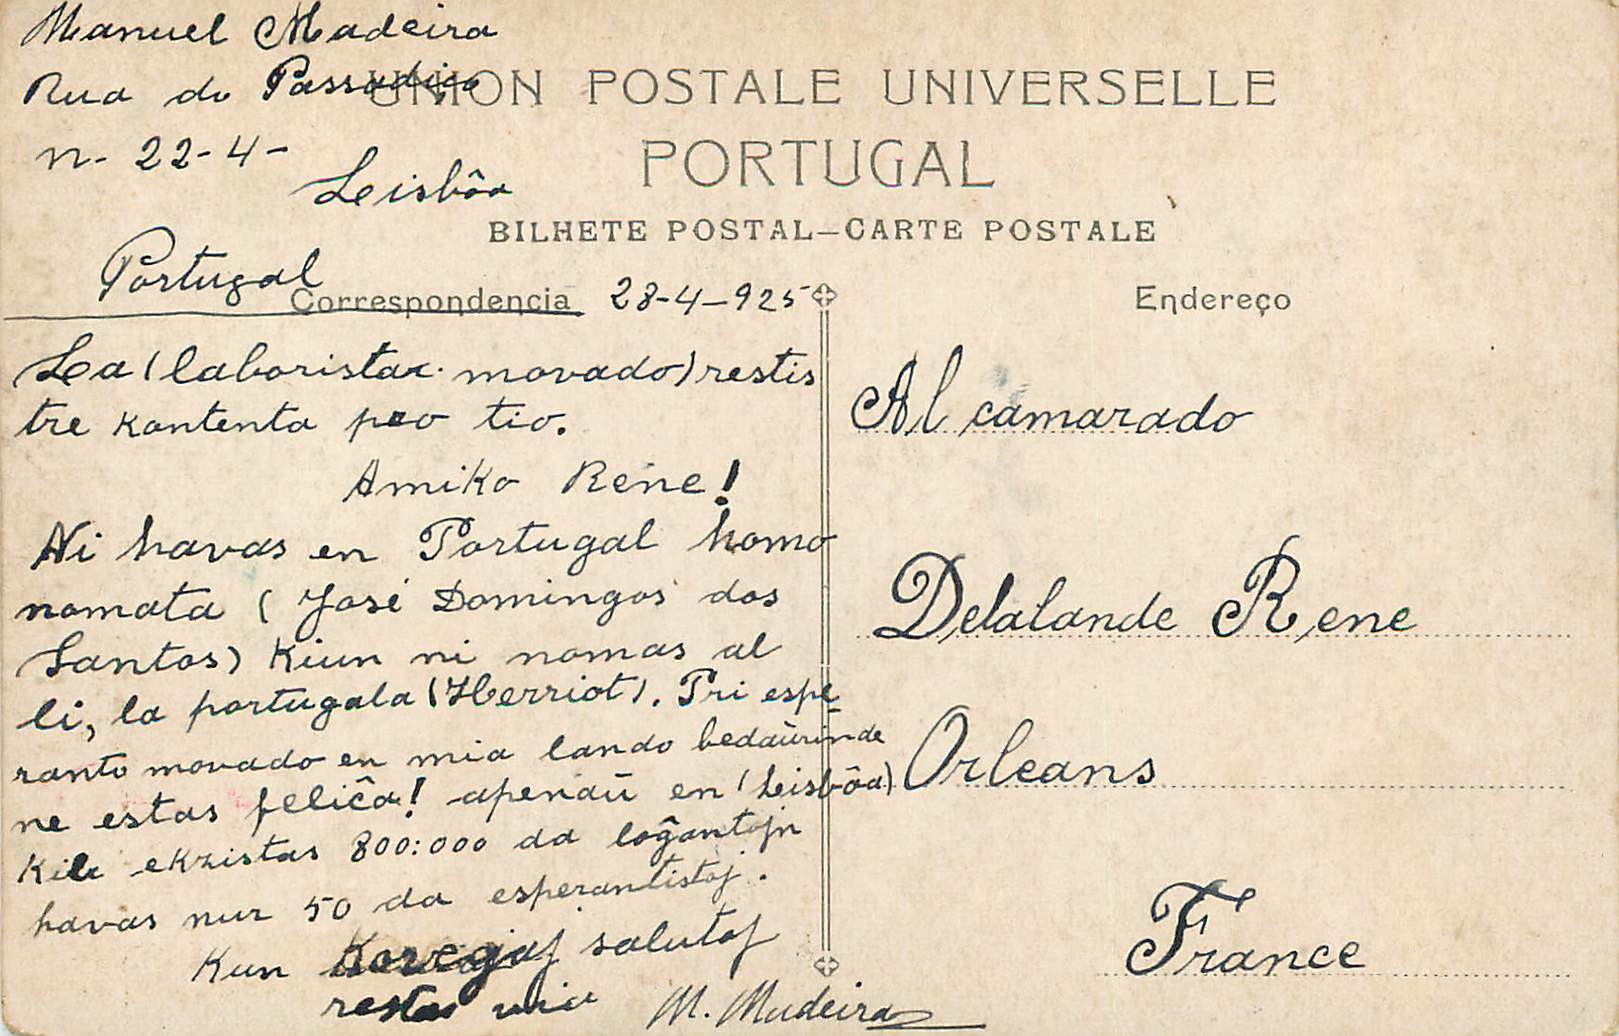 Manuel Madeira
Rua do Passadiço
n- 22-4-
Leisbôa
Portugal
UNION POSTALE UNIVERSELLE
PORTUGAL
BILHETE POSTAL—CARTE POSTALE
Correspondencia 28-4-925
La (laborista movado) restis
tre kontenta pro tio.
Amiko Rene!
Ni havas en Portugal homo
nomata (José Domingos dos
Santos) Kiun ni nomas al
li, la portugala (Herriot). Pri espe
ranto movado en mia lando bedaŭrinde
ne estas feliĉa! apenaŭ en (Leisbôa)
Kie ekzistas 800:000 da loĝantojn
havas nur 50 da esperantistoj.
Kun Koregaj salutoj
restas via M. Madeira
Endereço
Al camarado
Delalande Rene
Orleans
France